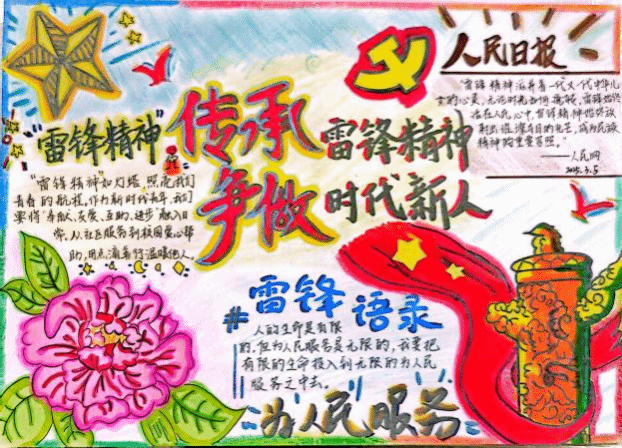 人民日报
"雷锋精神滋养着一代又一代中华儿
女的心灵,无论时光如何荏苒,雷锋始终
活在人民心中,雷锋精神始终放
射出璀璨夺目的光芒,成为民族
精神的重要
——人民网
3.5
传承 雷锋精神
争做 时代新人
"雷锋精神"
"雷锋精神"如灯塔,照亮我们
青春的航程,作为新时代青年,我们
要将奉献、友爱、互助、进步融入日
常,从社区服务到校园爱心帮
助,用点滴善行温暖他人。
#雷锋语录
人的生命是有限
的,但为人民服务是无限的,我要把
有限的生命投入到无限的为人民
服务之中去。
为人民服务